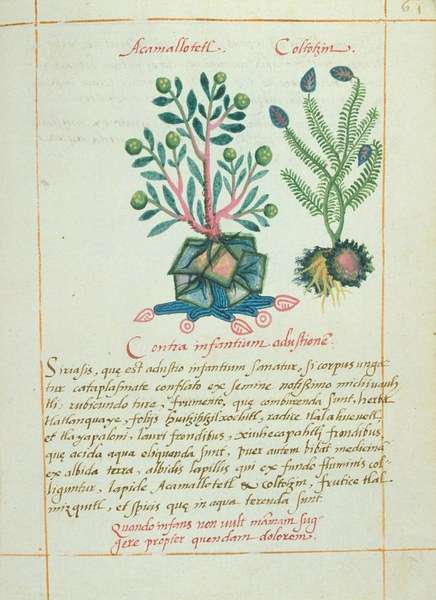 61
Acamallotetl. Coltotzin.
Contra infantium adustionē.
Siriasis, que est adustio infantium sanatur, si corpus unga
tur cataplasmate conflato ex semine notissimo michivauh
tli, rubicundo ture, frumento, que comburenda sunt, herba
tlatlanquaye, folijs huitzitzilxochitl, radice tlalahuevetl
et tlayapaloni, lauri frondibus, xiuhecapahtli frondibus,
que acida aqua eliquenda sunt, puer autem bibat medicinā
ex albida terra, albidis lapillis qui ex fundo fluminis col-
liguntur, lapide Acamallotetl & coltotzin, frutice tlal
mizquitl, et spicis que in aqua terenda sunt.
Quando infans non uult mamam sug
gere propter quendam dolorem.